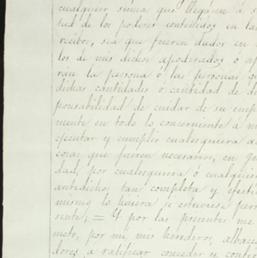 cualquier suma que llegüen á
tud de los poderes conferidos en la
recibos, sea que fueren dados en
los de mis dichos apoderados ó ap
ran la persona ó las personas q
dichas cantidades ó cantidad de d
ponsabilidad de cuidar de su emp
mente en todo lo concerniente á m
ejecutar y cumplir cualesquiera
cosas que fueren necesarios, en
dad, por cualesquiera ó cualquier
antedichos, tan completa y efecti
mismo lo hiciera si estuviese per
nente; = Y por las presentes me
meto, por mi, mis herederos, albaceas
dores á ratificar conceder y confir